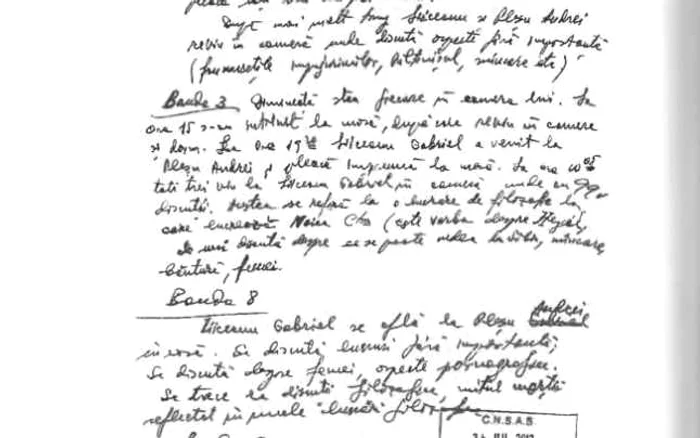 După mai mult timp Liiceanu și Pleșu Andrei
revin în cameră unde discută aspecte fără importanță
(frumusețile împrejurimilor, Păltinișul, mîncare etc)
Banda 3 Dimineață stau fiecare în camera lui. La
ora 15 s-au întîlnit la masă, după care revin în camere
și dorm. La ora 19 Liiceanu Gabriel a venit la
Pleșu Andrei și pleacă împreună la masă. La ora
toți trei vin la Liiceanu Gabriel în cameră unde au
discuții. Acestea se referă la o lucrare de filozofie la
care lucrează Noica C-tin (este vorba despre Hegel,
se mai discută despre ce se poate vedea la Sibiu, mîncare,
băutură, femei.
Banda 8
Liiceanu Gabriel se află la Pleșu Andrei
în casă. Se discută lucruri fără importanță;
Se discută despre femei, aspecte pornografice.
Se trece la discuții filozofice, mitul morții
reflectat în unele lucrări filozofice
C.N.S.A.S.